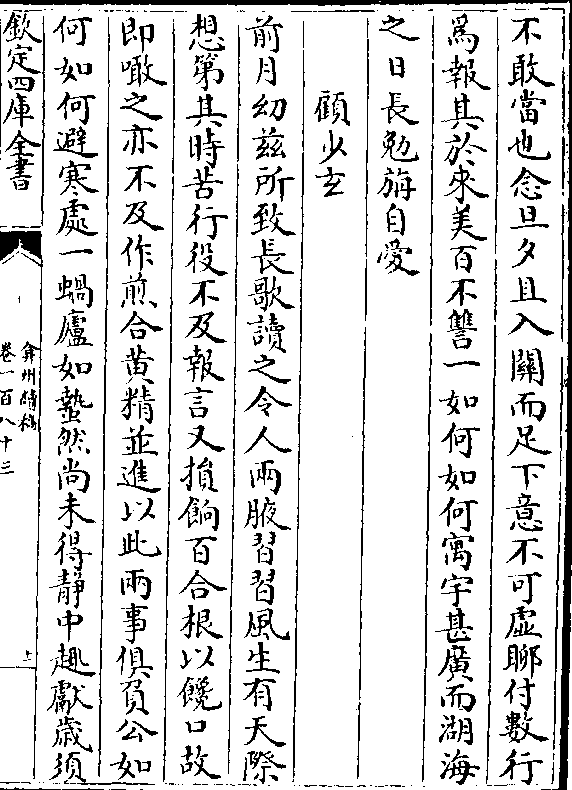 不敢當也念旦夕且入關而足下意不可虛聊付數行
爲報其於來美百不讐一如何如何寓宇甚廣而湖海
之日長勉旃自愛
顧少玄
前月幼茲所致長歌讀之令人兩腋習習風生有天際
想第其時苦行役不及報言又損餉百合根以饞口故
即噉之亦不及作煎合黄精並進以此兩事俱負公如
何如何避寒處一蝸廬如蟄然尚未得靜中趣獻歳須
欽定四庫全書
弇州續稿
卷一百八十三